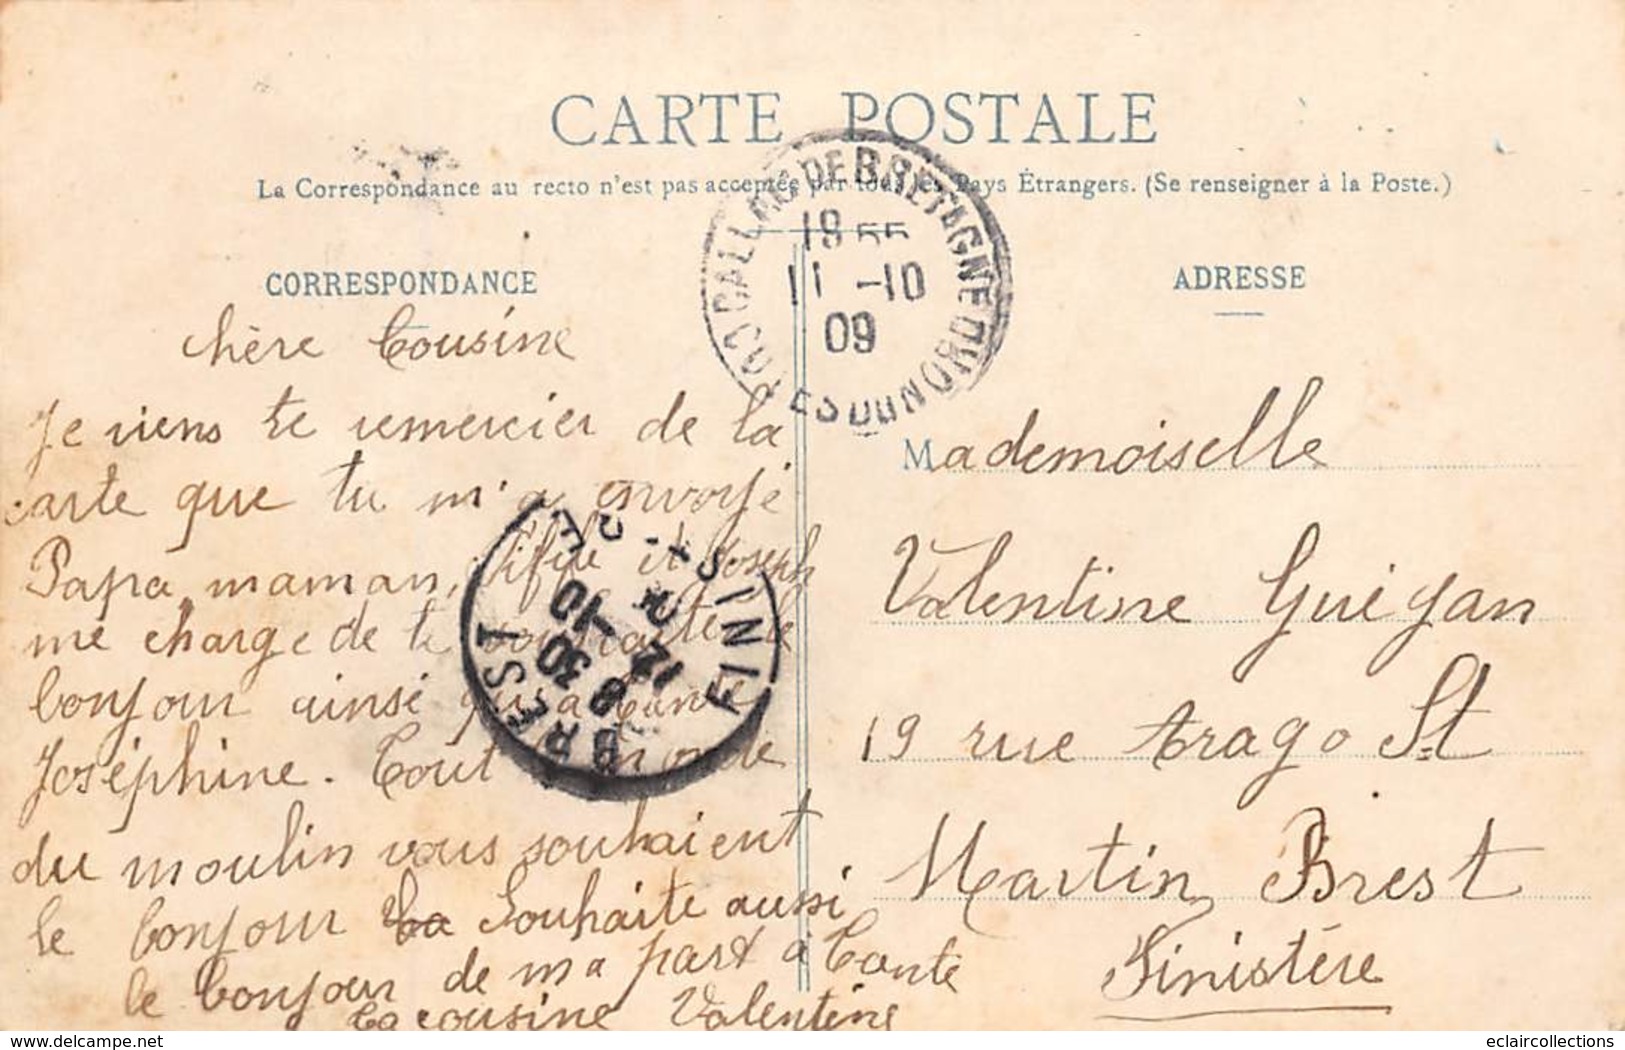 CARTE POSTALE
La Correspondance au recto n'est pas acceptée par tous les Pays Étrangers. (Se renseigner à la Poste.)
CORRESPONDANCE
chère Cousine
Je viens te remercier de la
carte que tu m'a envoyé
Papa, maman, et Joseph
me charge de te souhaiter le
bonjour ainsi qu'a tante
Joséphine. Tout monde
du moulin vous souhaient
le bonjour Souhaite aussi
le bonjour de ma part à tante
ta cousine Valentine
ADRESSE
Mademoiselle
Valentine Guégan
19 rue Arago St
Martin Brest
Finistère
CALLAC DE BRETAGNE
11 -10
09
CÔTES DU NORD
BREST
8 30
12 -10
FINIST
www.delcampe.net
eclaircollections